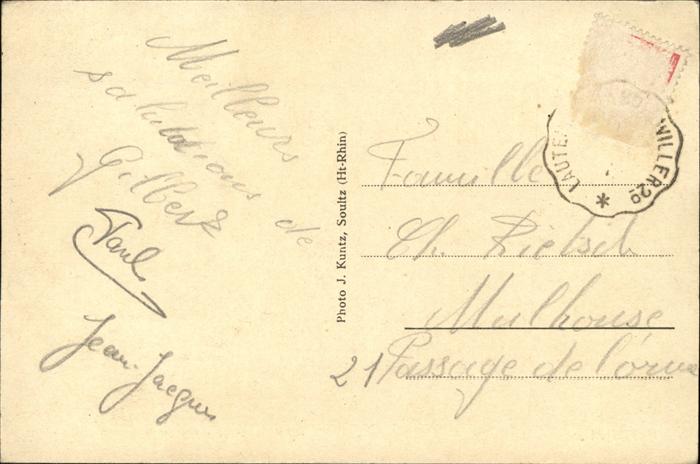 Meilleurs
salutations de
Gilbert
Paul
Jean-Jacques
Photo J. Kuntz, Soultz (Ht-Rhin)
LAUTE
ILLER 2º
Famille
Ch. Rietsch
Mulhouse
21 Passage de l'orme